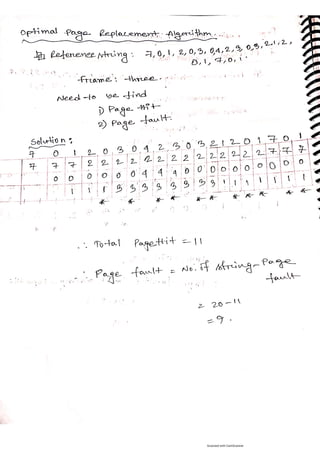 Optimal Page Replacement Algorithm.
Reference string: 7,0,1,2,0,3,0,4,2,3,0,3,2,1,2,
0,1,7,0,1
frame: three
Need to we find
1) Page Hit
2) Page fault.
Solution:
7 0 1 2 0 3 0 4 2 3 0 3 2 1 2 0 1 7 0 1
7 7 7 2 2 2 2 2 2 2 2 2 2 2 2 2 2 7 7 7
0 0 0 0 0 0 4 4 4 0 0 0 0 0 0 0 0 0 0
1 1 1 3 3 3 3 3 3 3 3 1 1 1 1 1 1 1
∴ Total PageHit = 11
∴ Page fault = No. of string - Page
fault
= 20-11
= 9.
Scanned with CamScanner